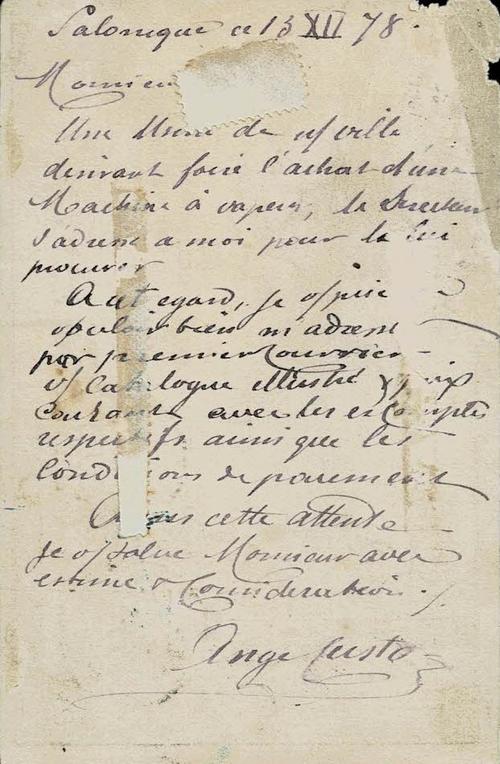 Salonique ce 13 XII 78.
Monsieur
Une Usine de n/ ville
désirant faire l'achat d'une
Machine à vapeur, le Directeur
s'adresse a moi pour la lui
procurer
A cet egard, je v/ prie
vouloir bien m'adresser
par premier Courrier
v/ Catalogue illustré & prix
Courants avec les escomptes
respectifs ainsi que les
Conditions de paiement
Dans cette attente
Je v/ salue Monsieur avec
estime & Consideration.
Ange